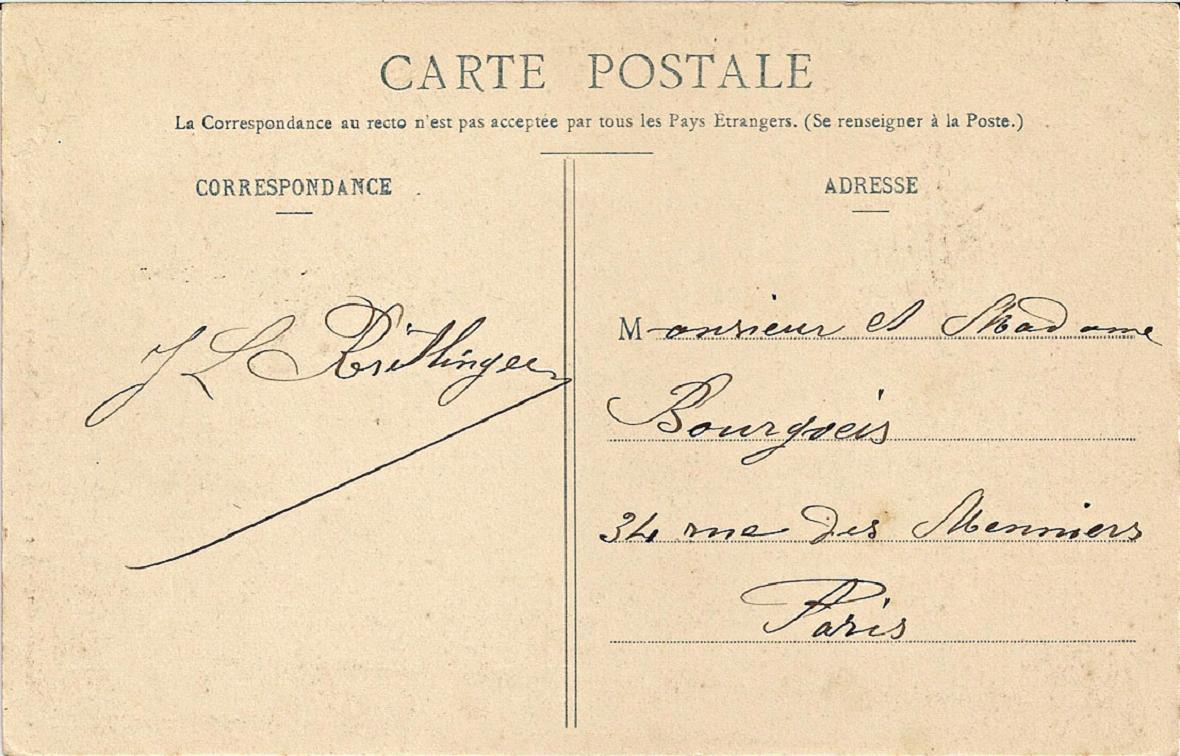 CARTE POSTALE
La Correspondance au recto n'est pas acceptée par tous les Pays Étrangers. (Se renseigner à la Poste.)
CORRESPONDANCE
J L
ADRESSE
Monsieur et Madame
Bourgois
34 rue des Meuniers
Paris